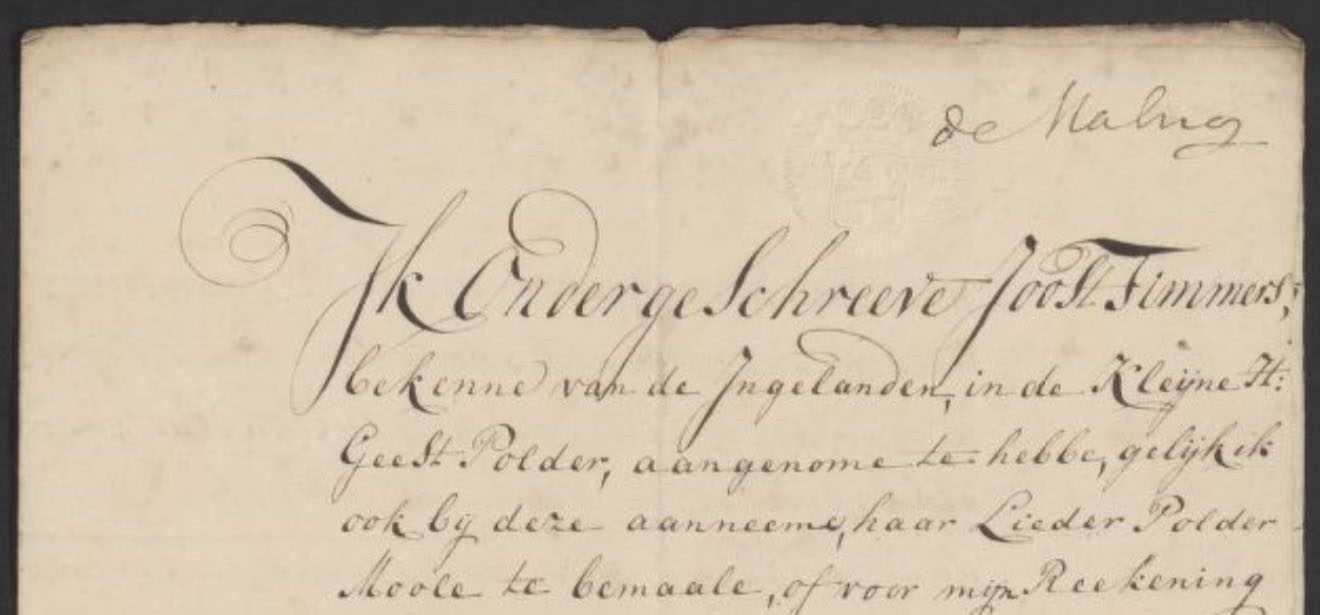 de Maling
Ik OndergeSchreeve Joost Timmers,
bekenne van de Ingelanden, in de Kleijne H:
Geest Polder, aangenome te hebbe, gelijk ik
ook bij deze aanneeme, haar Lieder Polder
Moole te bemaale, of voor mijn Reekening